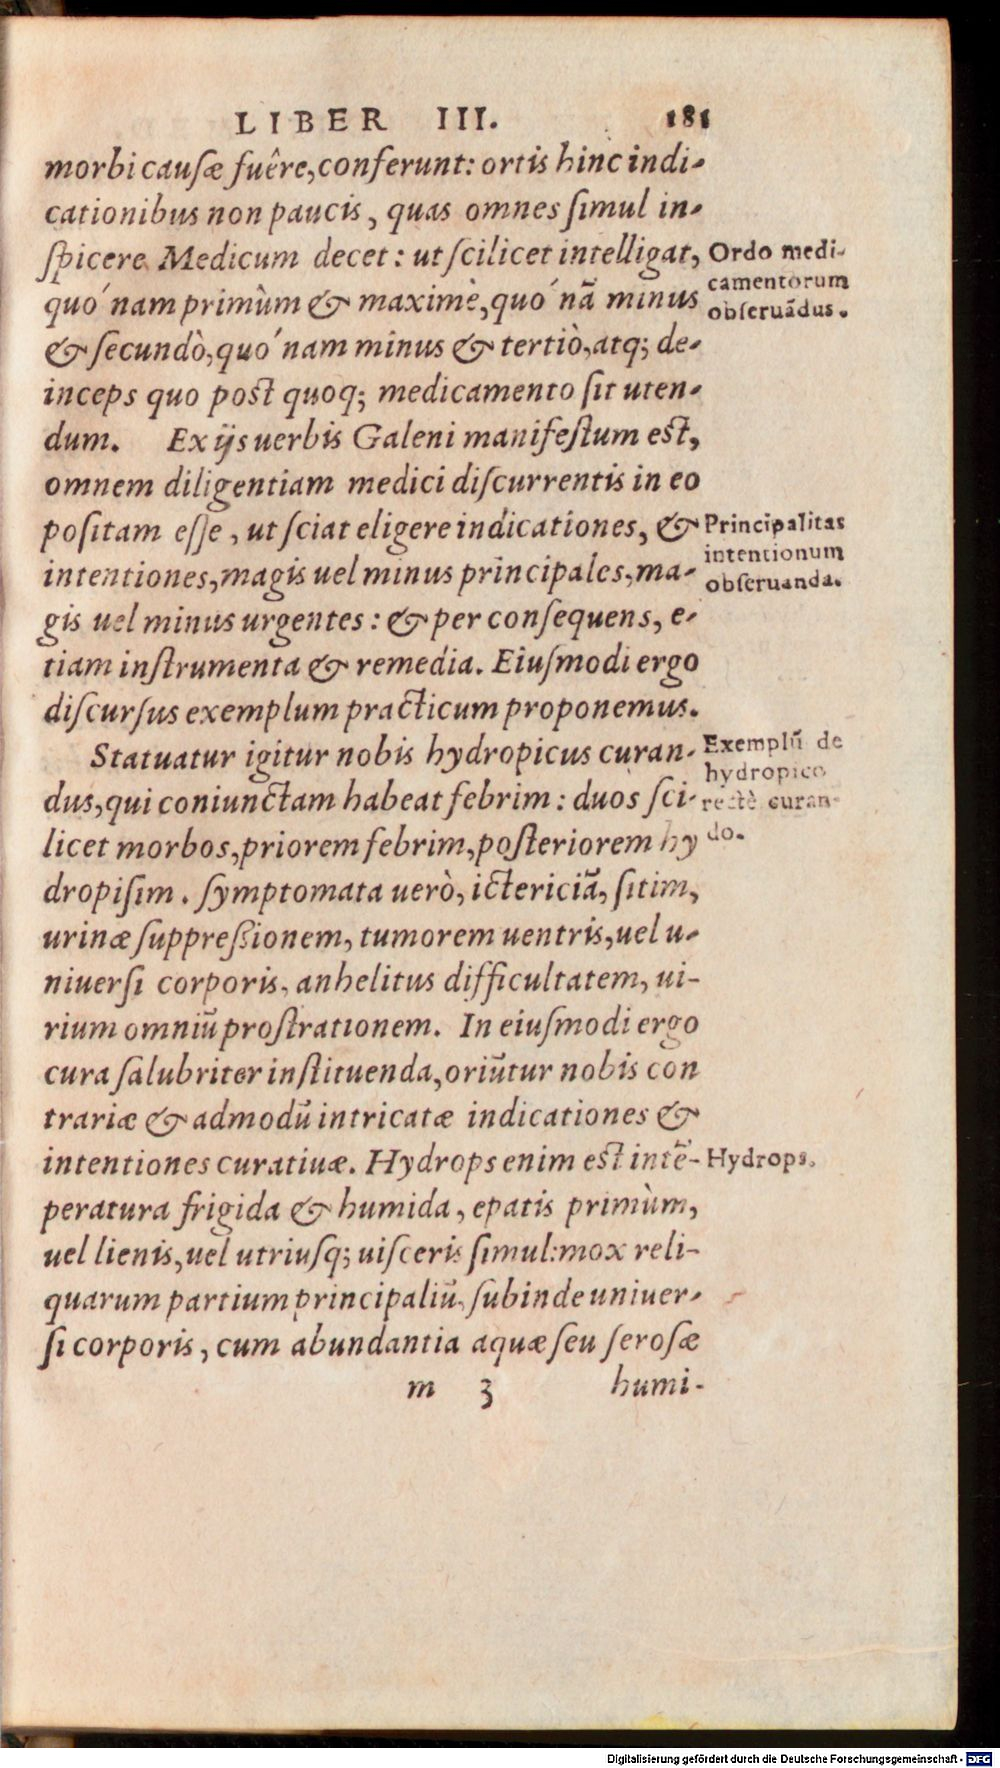 LIBER III. 181
morbi cauſæ fuêre, conferunt: ortis hinc indi-
cationibus non paucis, quas omnes ſimul in-
ſpicere Medicum decet: ut ſcilicet intelligat,
quó nam primùm & maximè, quó nā minus
& ſecundò, quó nam minus & tertiò, atq; de-
inceps quo poſt quoq; medicamento ſit uten-
dum. Ex ijs uerbis Galeni manifeſtum eſt,
omnem diligentiam medici diſcurrentis in eo
poſitam eſſe, ut ſciat eligere indicationes, &
intentiones, magis uel minus principales, ma-
gis uel minus urgentes: & per conſequens, e-
tiam inſtrumenta & remedia. Eiuſmodi ergo
diſcurſus exemplum practicum proponemus.
Statuatur igitur nobis hydropicus curan-
dus, qui coniunctam habeat febrim: duos ſci-
licet morbos, priorem febrim, poſteriorem hy
dropiſim. ſymptomata uerò, ictericiā, ſitim,
urinæ ſuppreßionem, tumorem uentris, uel u-
niuerſi corporis, anhelitus difficultatem, ui-
rium omniū proſtrationem. In eiuſmodi ergo
cura ſalubriter inſtituenda, oriūtur nobis con
trariæ & admodū intricatæ indicationes &
intentiones curatiuæ. Hydrops enim eſt intē-
peratura frigida & humida, epatis primùm,
uel lienis, uel utriuſq; uiſceris ſimul: mox reli-
quarum partium principaliū, ſubinde uniuer-
ſi corporis, cum abundantia aquæ ſeu ſeroſæ
m 3 humi-
Ordo medi-
camentorum
obſeruādus.
Principalitas
intentionum
obſeruanda.
Exemplū de
hydropico
rectè curan-
do.
Hydrops.
Digitalisierung gefördert durch die Deutsche Forschungsgemeinschaft - DFG